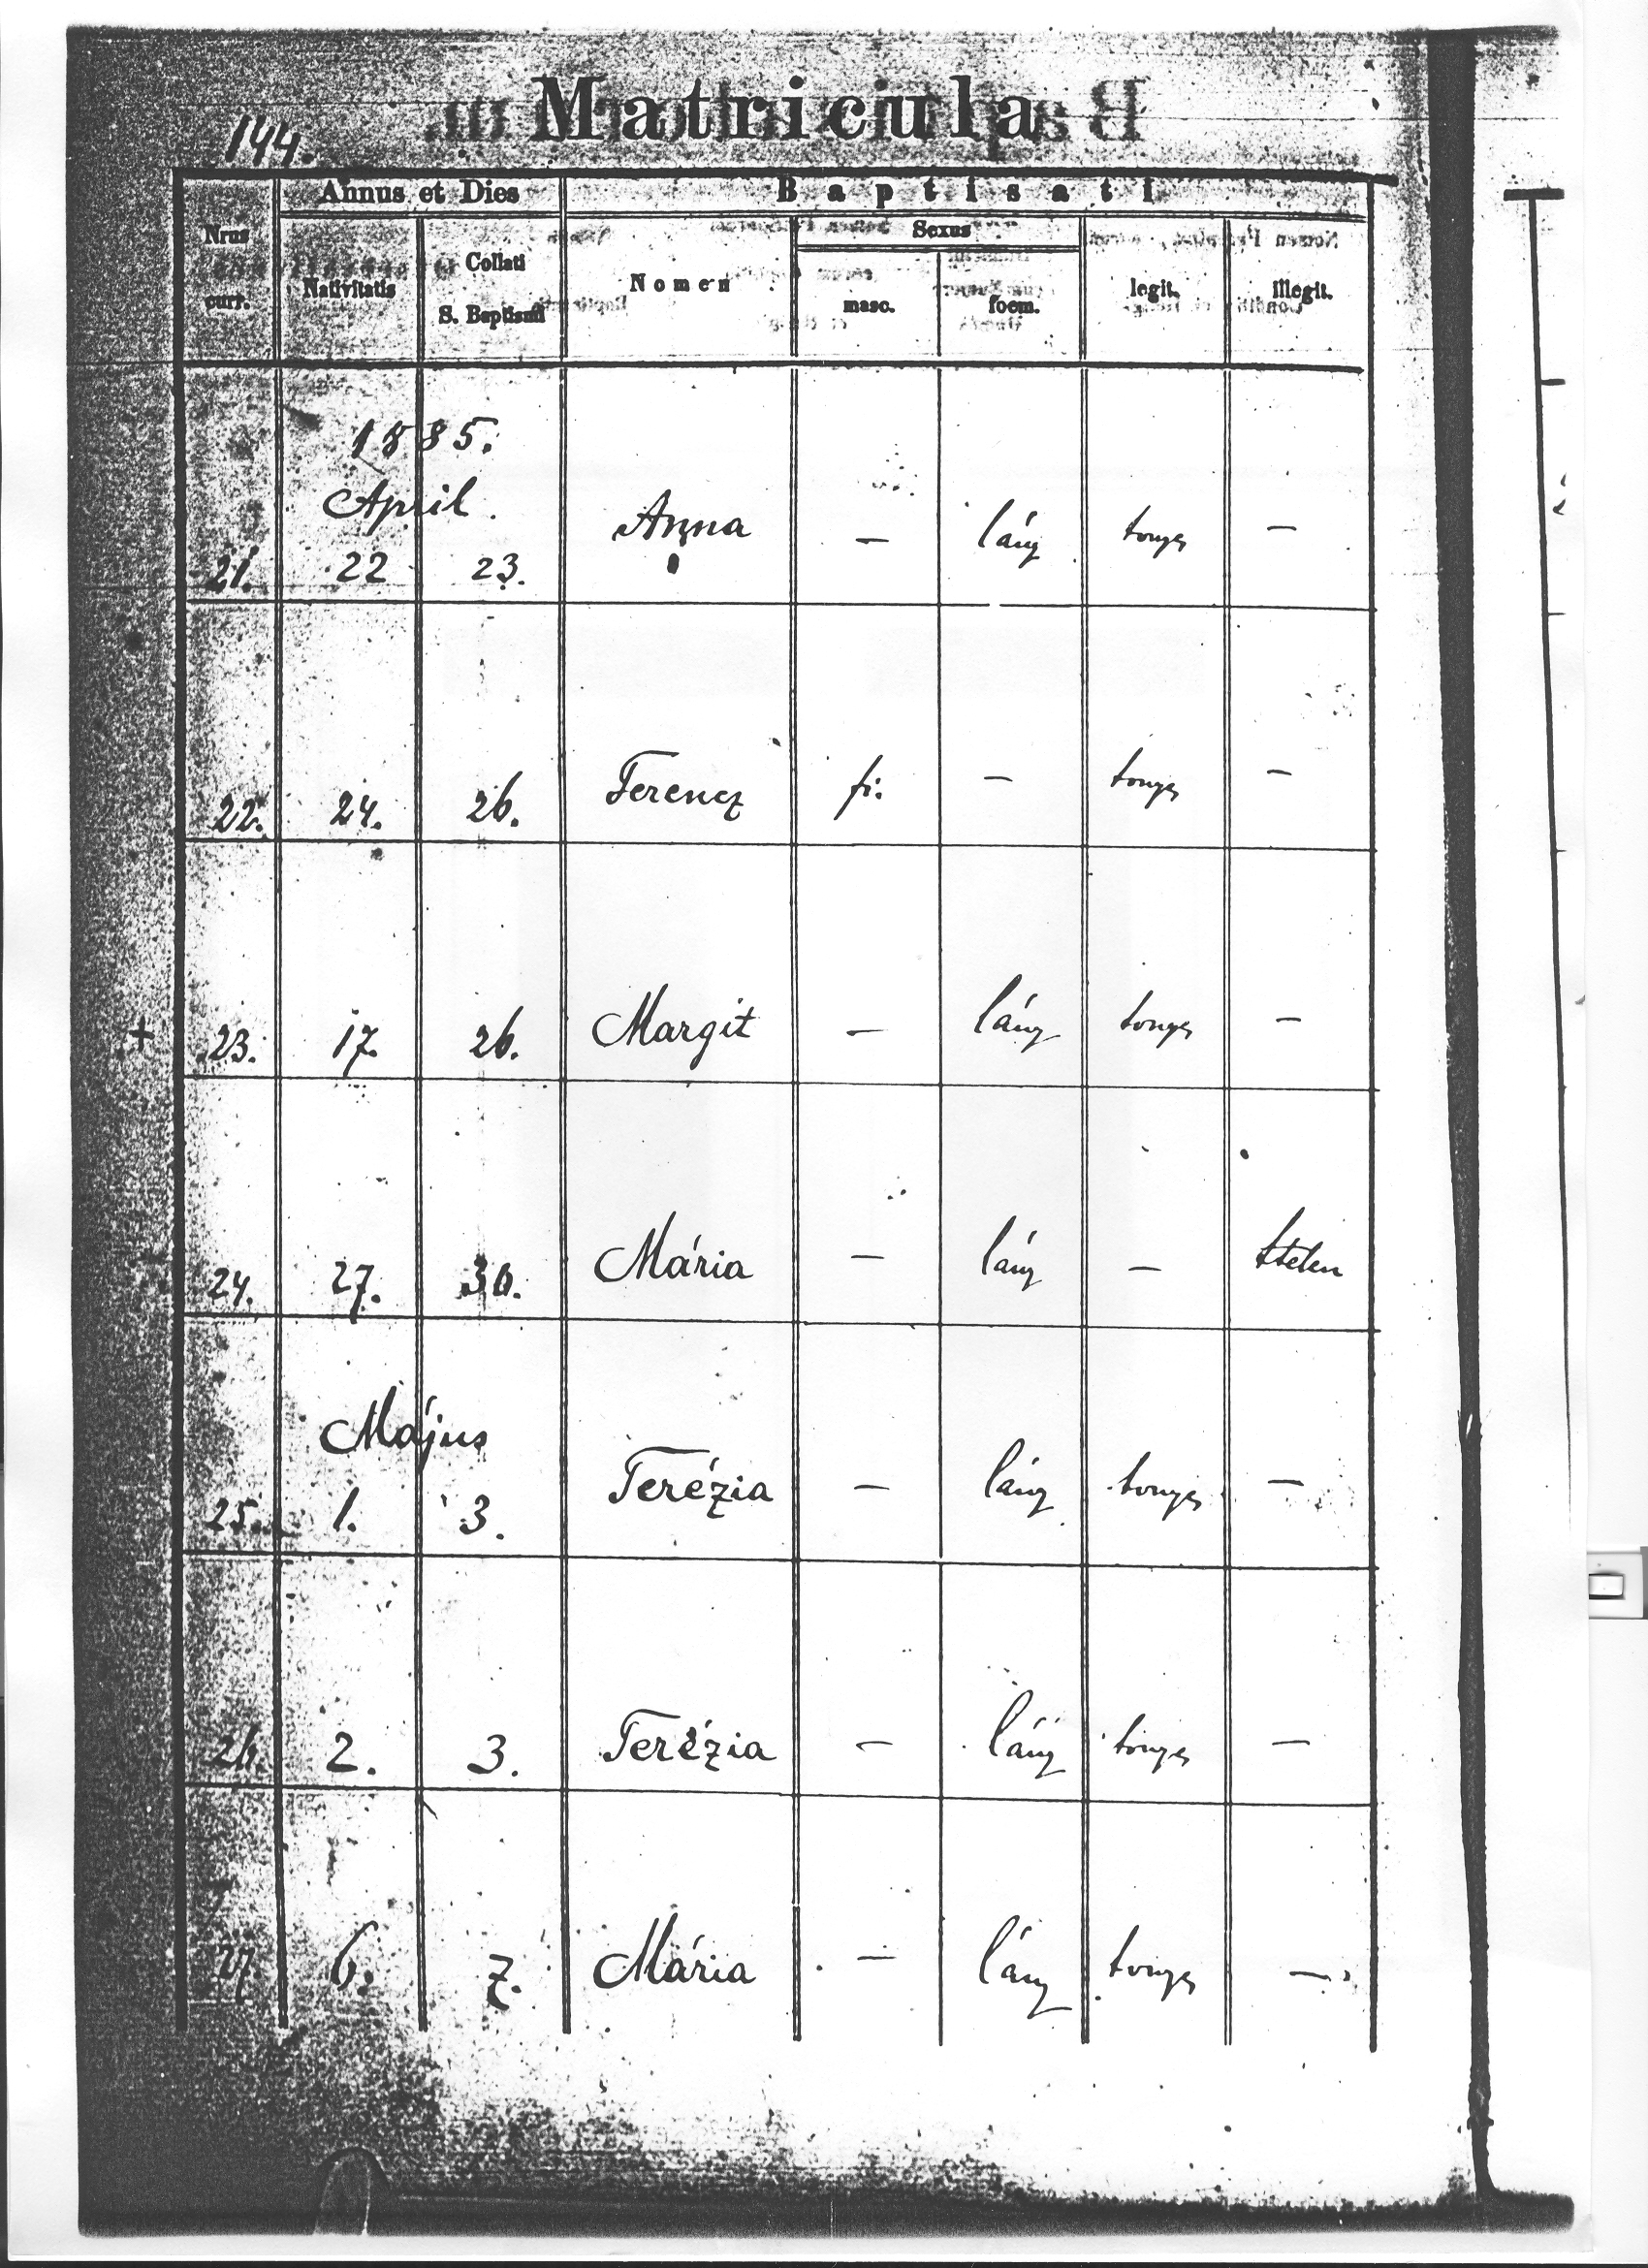 144.
Matricula
Annus et Dies B a p t i s a t i
Nrus curr. Nativitatis Collati S. Baptismi Nomen Sexus masc. foem. legit. illegit.
1885.
April
21. 22 23. Anna — lány tvnyes —
22. 24. 26. Ferencz fi. — tvnyes —
+ 23. 17. 26. Margit — lány tvnyes —
24. 27. 30. Mária — lány — ttelen
Május
25. 1. 3. Terézia — lány tvnyes —
26. 2. 3. Terézia — lány tvnyes —
27. 6. 7. Mária — lány tvnyes —